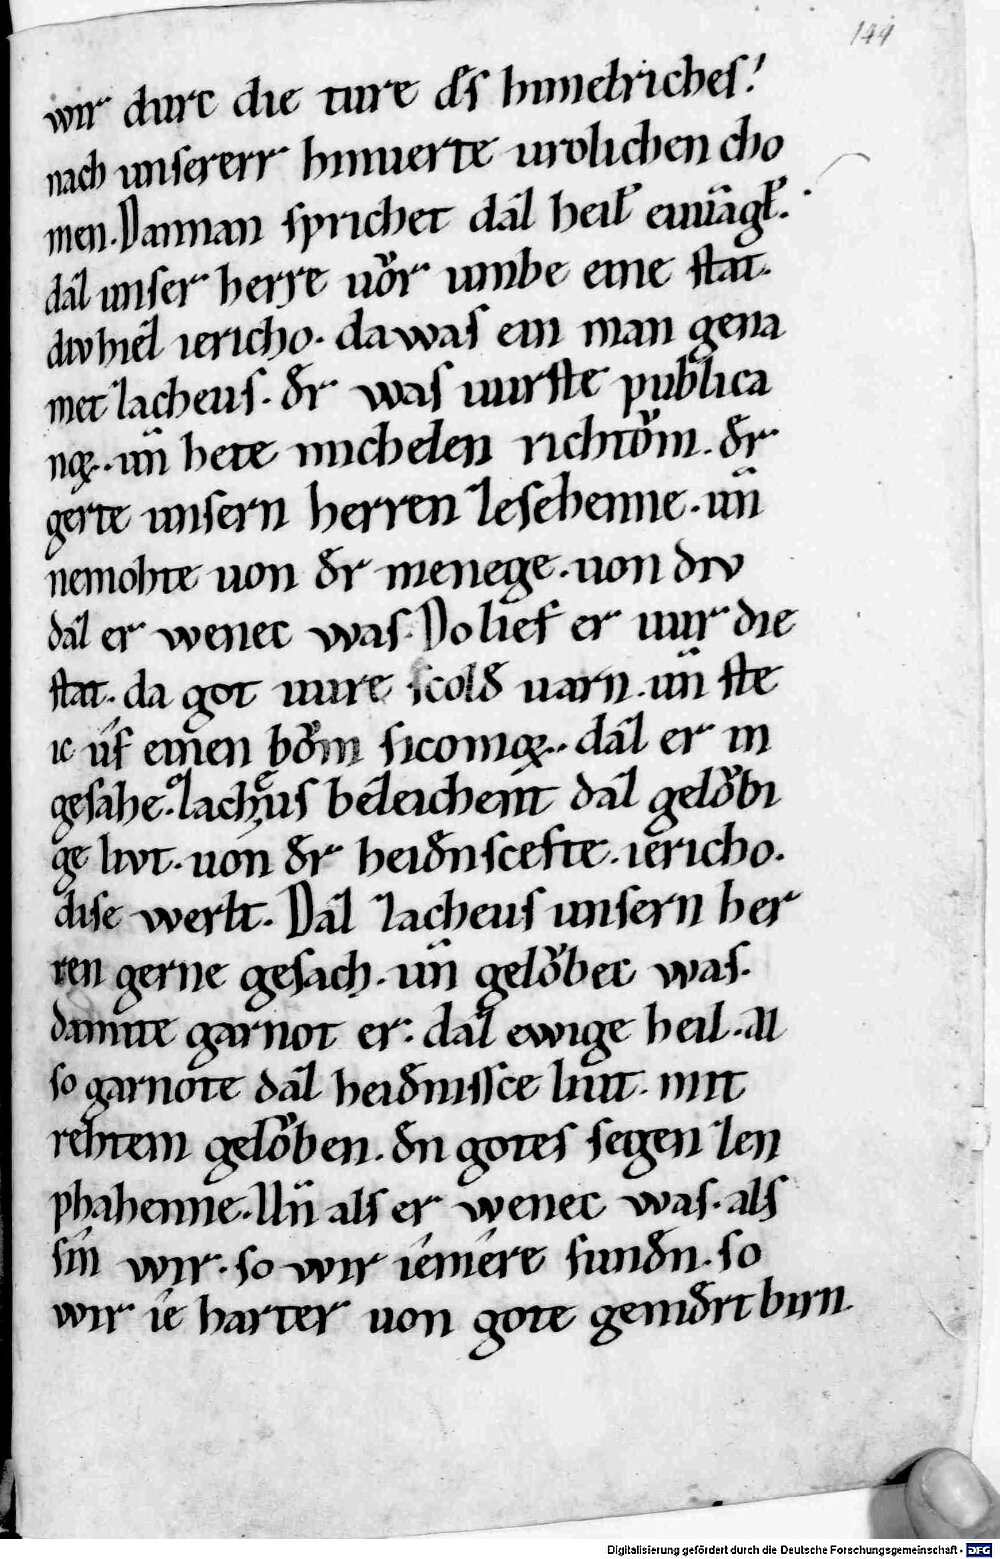 149
wir durc die ture ds himelriches!
nach unsererr hinuerte urolichen cho
men. Danman sprichet daz heil euuāgl.
daz unser herre uo̊r umbe eine stat.
div hiez iericho. da was ein man gena
met zacheus. dr was uurste publica
nox. uñ hete michelen richto̊m. dr
gerte unsern herren zesehenne. uñ
nemohte uon dr menege. uon div
daz er wenec was. Do lief er uur die
stat. da got uure scold uarn. uñ ste
ic úf einen bo̊m sicomox. daz er in
gesahe. zacheus bezeichent daz gelo̊bi
ge livt. uón dr heidnscefte. iericho.
dise werlt. Daz zacheus unsern her
ren gerne gesach. uñ gelo̊bec was.
damite garnot er: daz ewige heil. Al
so garnote daz heidnissce liut. mit
rehtem gelo̊ben. dn gotes segen zen
phahenne. Uñ als er wenec was. als
sín wir. so wir íemére sundn. so
wir ie harter uon gote genidrt birn
Digitalisierung gefördert durch die Deutsche Forschungsgemeinschaft - DFG